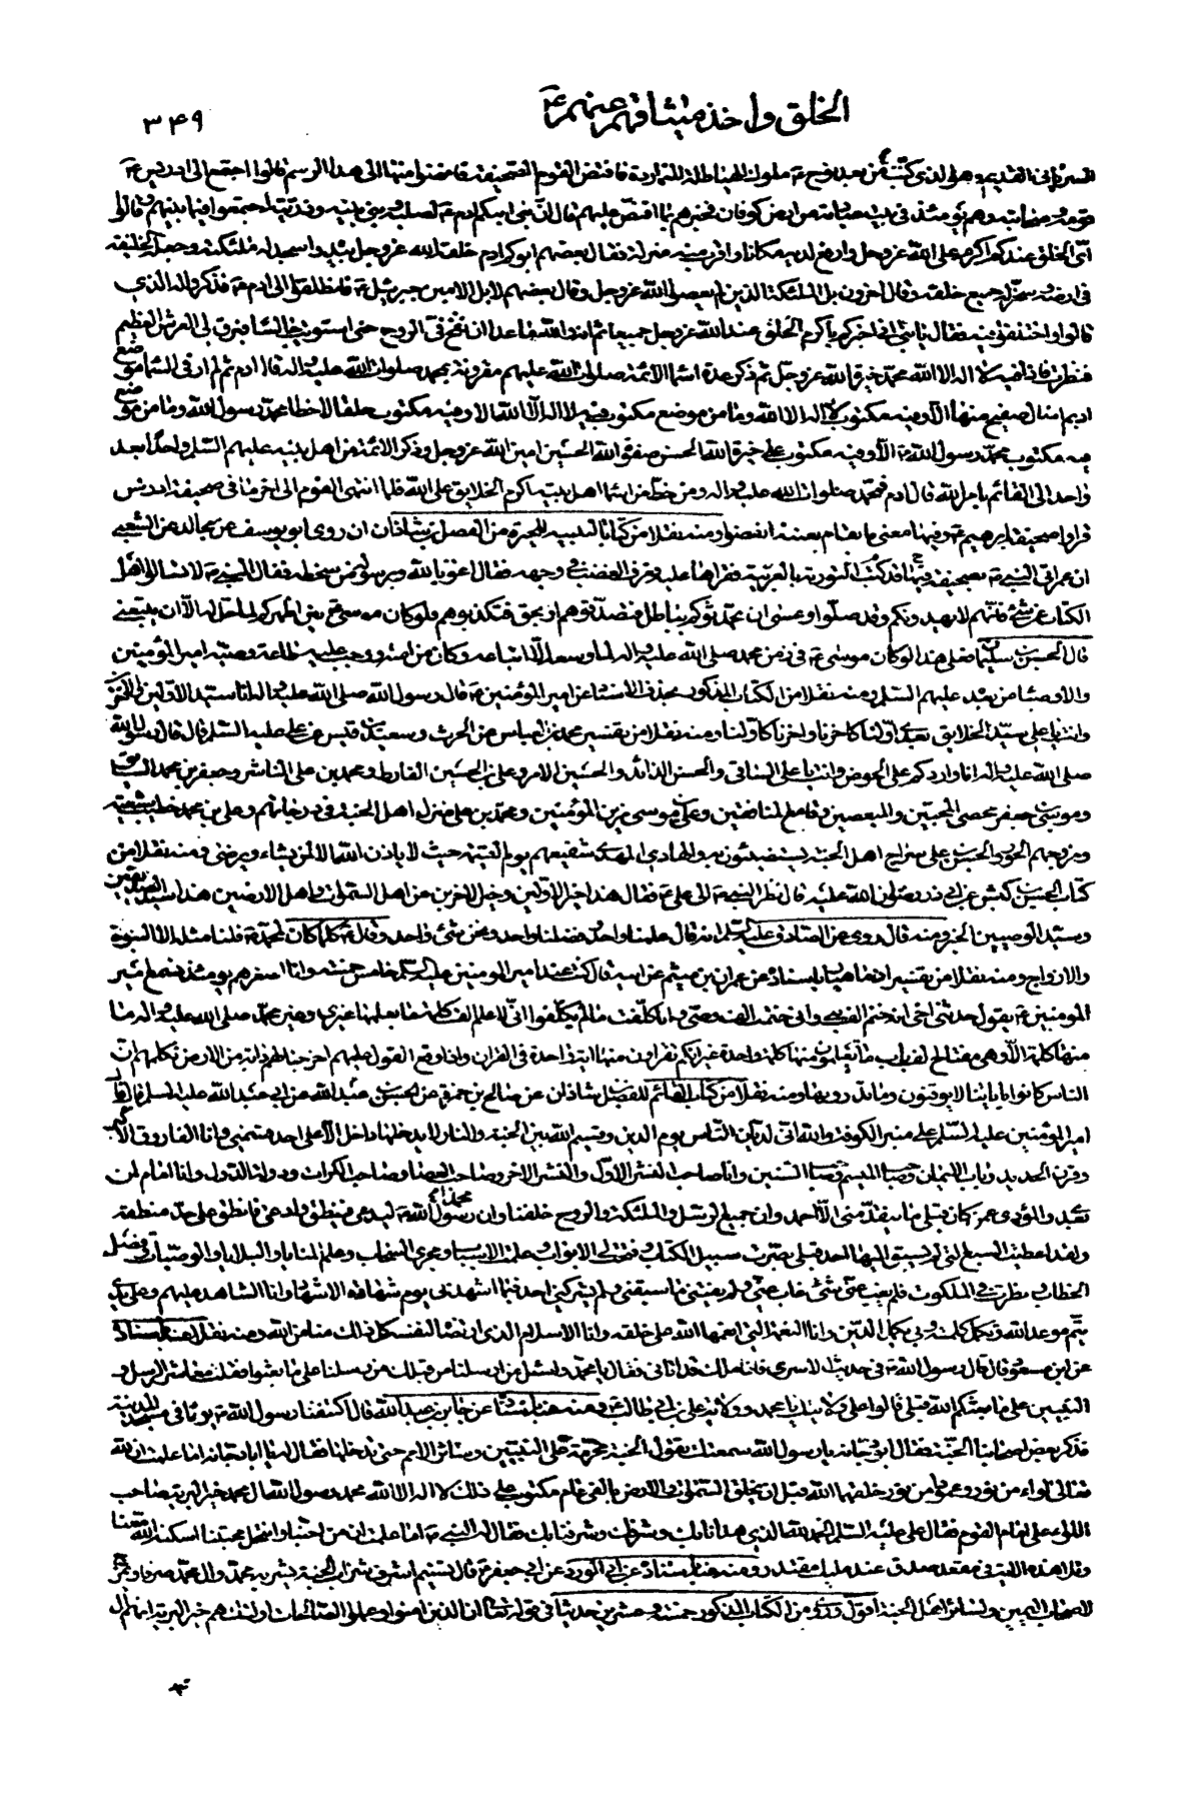 الخلق واخذ ميثاقهم عنهم ع ٣٤٩
القديم وهو الذي كتب من بعد نوح ملوك الهياطلة فاقتص القوم الصحيفة الى هذا الرسم قالوا اجتمع الى ادريس ع
قومه وصحابته وهم يومئذ في بيت عبادته من ارض كوفان فخبرهم بما اقتص عليهم قال ان بني ابيكم ادم لصلبه وبني بنيه وذريته اجتمعوا فيما بينهم وقالوا
اي الخلق عندكم اكرم على الله عز وجل وارفع لديه مكانا واقرب منه منزلة فقال بعضهم ابوكم ادم خلقه الله عز وجل بيده واسجد له ملئكته وجعله الخليفة
في ارضه وسخر له جميع خلقه وقال اخرون بل الملئكة الذين لم يعصوا الله عز وجل وقال بعضهم لا بل الامين جبرئيل فانطلقوا الى ادم فذكروا له الذي
قالوا واختلفوا فيه فقال يا بني انا اخبركم باكرم الخلق عند الله عز وجل جميعا انه والله ما عدا ان نفخ في الروح حتى استويت جالسا فبرق لي العرش العظيم
فنظرت فاذا فيه لا اله الا الله محمد خيرة الله عز وجل ثم ذكر عدة اسماء الائمة صلوات الله عليهم مقرونة بمحمد صلوات الله عليه واله قال ادم ثم لم ار في السماء موضع
اديم الا وفيه مكتوب لا اله الا الله وما من موضع مكتوب فيه لا اله الا الله الا وفيه مكتوب خلقا لا خطا محمد رسول الله وما من موضع
فيه مكتوب محمد رسول الله الا وفيه مكتوب علي خيرة الله الحسن صفوة الله الحسين امين الله عز وجل وذكر الائمة من اهل بيته عليهم السلم واحدا بعد
واحد الى القائم بامر الله قال ادم فمحمد صلوات الله عليه واله ومن خط من اسماء اهل بيته اكرم الخلايق على الله فلما انتهى القوم الى اخر ما في صحيفة ادريس
قراوا صحيفة ابرهيم وفيها معنى ما تقدم بعينه ومنه نقلا من كتاب للفضل بن شاذان ان روى ابو يوسف عن مجالد عن الشعبي
ان عمر اتى النبي بصحيفة قد كتب التورية بالعربية فقراها عليه فعرف الغضب في وجهه فقال اعوذ بالله وبرسوله من سخطه فقال النبي لا تسالوا اهل
الكتاب عن شئ فانهم لا يهدونكم وقد ضلوا وعسى ان يحدثوكم بباطل فتصدقوهم او بحق فتكذبوهم ولو كان موسى بين اظهركم لما حل له الا ان يتبعني
قال الحسن بن سليمان فعلى هذا لو كان موسى في زمن محمد صلى الله عليه واله لما وسعه الا اتباعه وكان من امته ووجب عليه طاعة وصيه امير المؤمنين
والاوصياء من بعده عليهم السلم ومنه نقلا من الكتاب المذكور بحذف الاسناد عن امير المؤمنين قال رسول الله صلى الله عليه واله انا سيد الاولين والاخرين
وانت يا علي سيد الخلايق بعدي اولنا كاخرنا واخرنا كاولنا ومنه نقلا من تفسير محمد بن العباس عن الحرث وسعيد بن قيس عن علي عليه السلم قال قال رسول الله
صلى الله عليه واله انا واردكم على الحوض وانت يا علي الساقي والحسن الذائد والحسين الامر وعلي بن الحسين الفارط ومحمد بن علي الناشر وجعفر بن محمد السائق
وموسى بن جعفر محصي المحبين والمبغضين وقامع المنافقين وعلي بن موسى مزين المؤمنين ومحمد بن علي منزل اهل الجنة في درجاتهم وعلي بن محمد خطيب شيعته
ومزوجهم الحور والحسن بن علي سراج اهل الجنة يستضيئون به والهادي المهدي شفيعهم يوم القيمة حيث لا ياذن الله الا لمن يشاء ويرضى ومنه نقلا من
كتاب الحسن بن كبش عن ابي ذر رضوان الله عليه قال نظر النبي الى علي فقال هذا خير الاولين وخير الاخرين من اهل السموات واهل الارضين هذا سيد الصديقين
وسيد الوصيين الخبر ومنه قال روى عن الصادق عليه السلم انه قال علمنا واحد وفضلنا واحد ونحن شئ واحد وقال كلما كان لمحمد فلنا مثله الا النبوة
والازواج ومنه نقلا من تفسير باسناده عن عمران بن ميثم عن ابيه قال كنت عند امير المؤمنين عليه السلم خامس خمسة وانا اصغرهم يومئذ فسمع امير
المؤمنين يقول حدثني اخي انه ختم الف نبي واني ختمت الف وصي وانا كلفت ما لم يكلفوا اني لاعلم الف كلمة ما يعلمها غيري وغير محمد صلى الله عليه واله ما
منها كلمة الا وهي مفتاح لالف باب ما تعلمون منها كلمة واحدة غير انكم تقرؤن منها اية واحدة في القران واذا وقع القول عليهم اخرجنا لهم دابة من الارض تكلمهم ان
الناس كانوا باياتنا لا يوقنون وما تدرونها ومنه نقلا من كتاب القائم للفضل بن شاذان عن صالح بن حمزة عن الحسن بن عبد الله عن ابي عبد الله عليه السلم قال قال
امير المؤمنين عليه السلم على منبر الكوفة والله اني لديان الناس يوم الدين وقسيم الله بين الجنة والنار لا يدخلها داخل الا على احد قسمي وانا الفاروق الاكبر
وقرن الحديد وباب الايمان وصاحب الميسم وصاحب السنين وانا صاحب النشر الاول والنشر الاخر وصاحب العصا وصاحب الكرات ودولة الدول وانا امام لمن
بعدي والمؤدي عمن كان قبلي ما يتقدمني الا احمد وان جميع الرسل والملئكة والروح خلفنا وان رسول الله ليدعى فينطق وادعى فانطق على حد منطقه
ولقد اعطيت السبع التي لم يسبق اليها احد قبلي بصرت سبيل الكتاب وفتحت لي الابواب وعلمت الاسباب ومجرى السحاب وعلم المنايا والبلايا والوصيات وفصل
الخطاب ونظرت في الملكوت فلم يعزب عني شئ غاب عني ولم يفتني ما سبقني ولم يشركني احد فيما اشهدني يوم شهادة الاشهاد وانا الشاهد عليهم وعلى يدي
يتم موعد الله وتكمل كلمته وبي يكمل الدين وانا النعمة التي انعمها الله على خلقه وانا الاسلام الذي ارتضاه لنفسه كل ذلك منا من الله ومنه نقلا باسناده
عن ابن مسعود قال قال رسول الله في حديث الاسرى فاذا ملك قد اتاني فقال يا محمد واسئل من ارسلنا من قبلك من رسلنا على ما بعثوا فقلت معاشر الرسل و
النبيين على ما بعثكم الله قبلي قالوا على ولايتك يا محمد وولاية علي بن ابي طالب ومنه عن جابر بن عبد الله قال اكتنفنا رسول الله يوما في مسجد المدينة
فذكر بعض اصحابنا الجنة فقال ابو دجانة يا رسول الله سمعتك يقول الجنة محرمة على النبيين وسائر الامم حتى تدخلها فقال له يا ابا دجانة اما علمت ان لله
تعالى لواء من نور وعمودا من نور خلقهما الله قبل ان يخلق السموات والارض بالفي عام مكتوب على ذلك لا اله الا الله محمد رسول الله ال محمد خير البرية صاحب
اللواء علي امام القوم فقال علي عليه السلم الحمد لله الذي هدانا بك وشرفك وشرفنا بك فقال له النبي اما علمت ان من احبنا وانتحل محبتنا اسكنه الله معنا
وتلا هذه الاية في مقعد صدق عند مليك مقتدر ومنه باسناده عن ابي الورد عن ابي جعفر قال تسنيم اشرف شراب الجنة يشربه محمد وال محمد صرفا ويمزج
لاصحاب اليمين ولسائر اهل الجنة اقول وروى من الكتاب المذكور خمسة وعشرين حديثا في قوله تعالى ان الذين امنوا وعملوا الصالحات اولئك هم خير البرية انهم ال